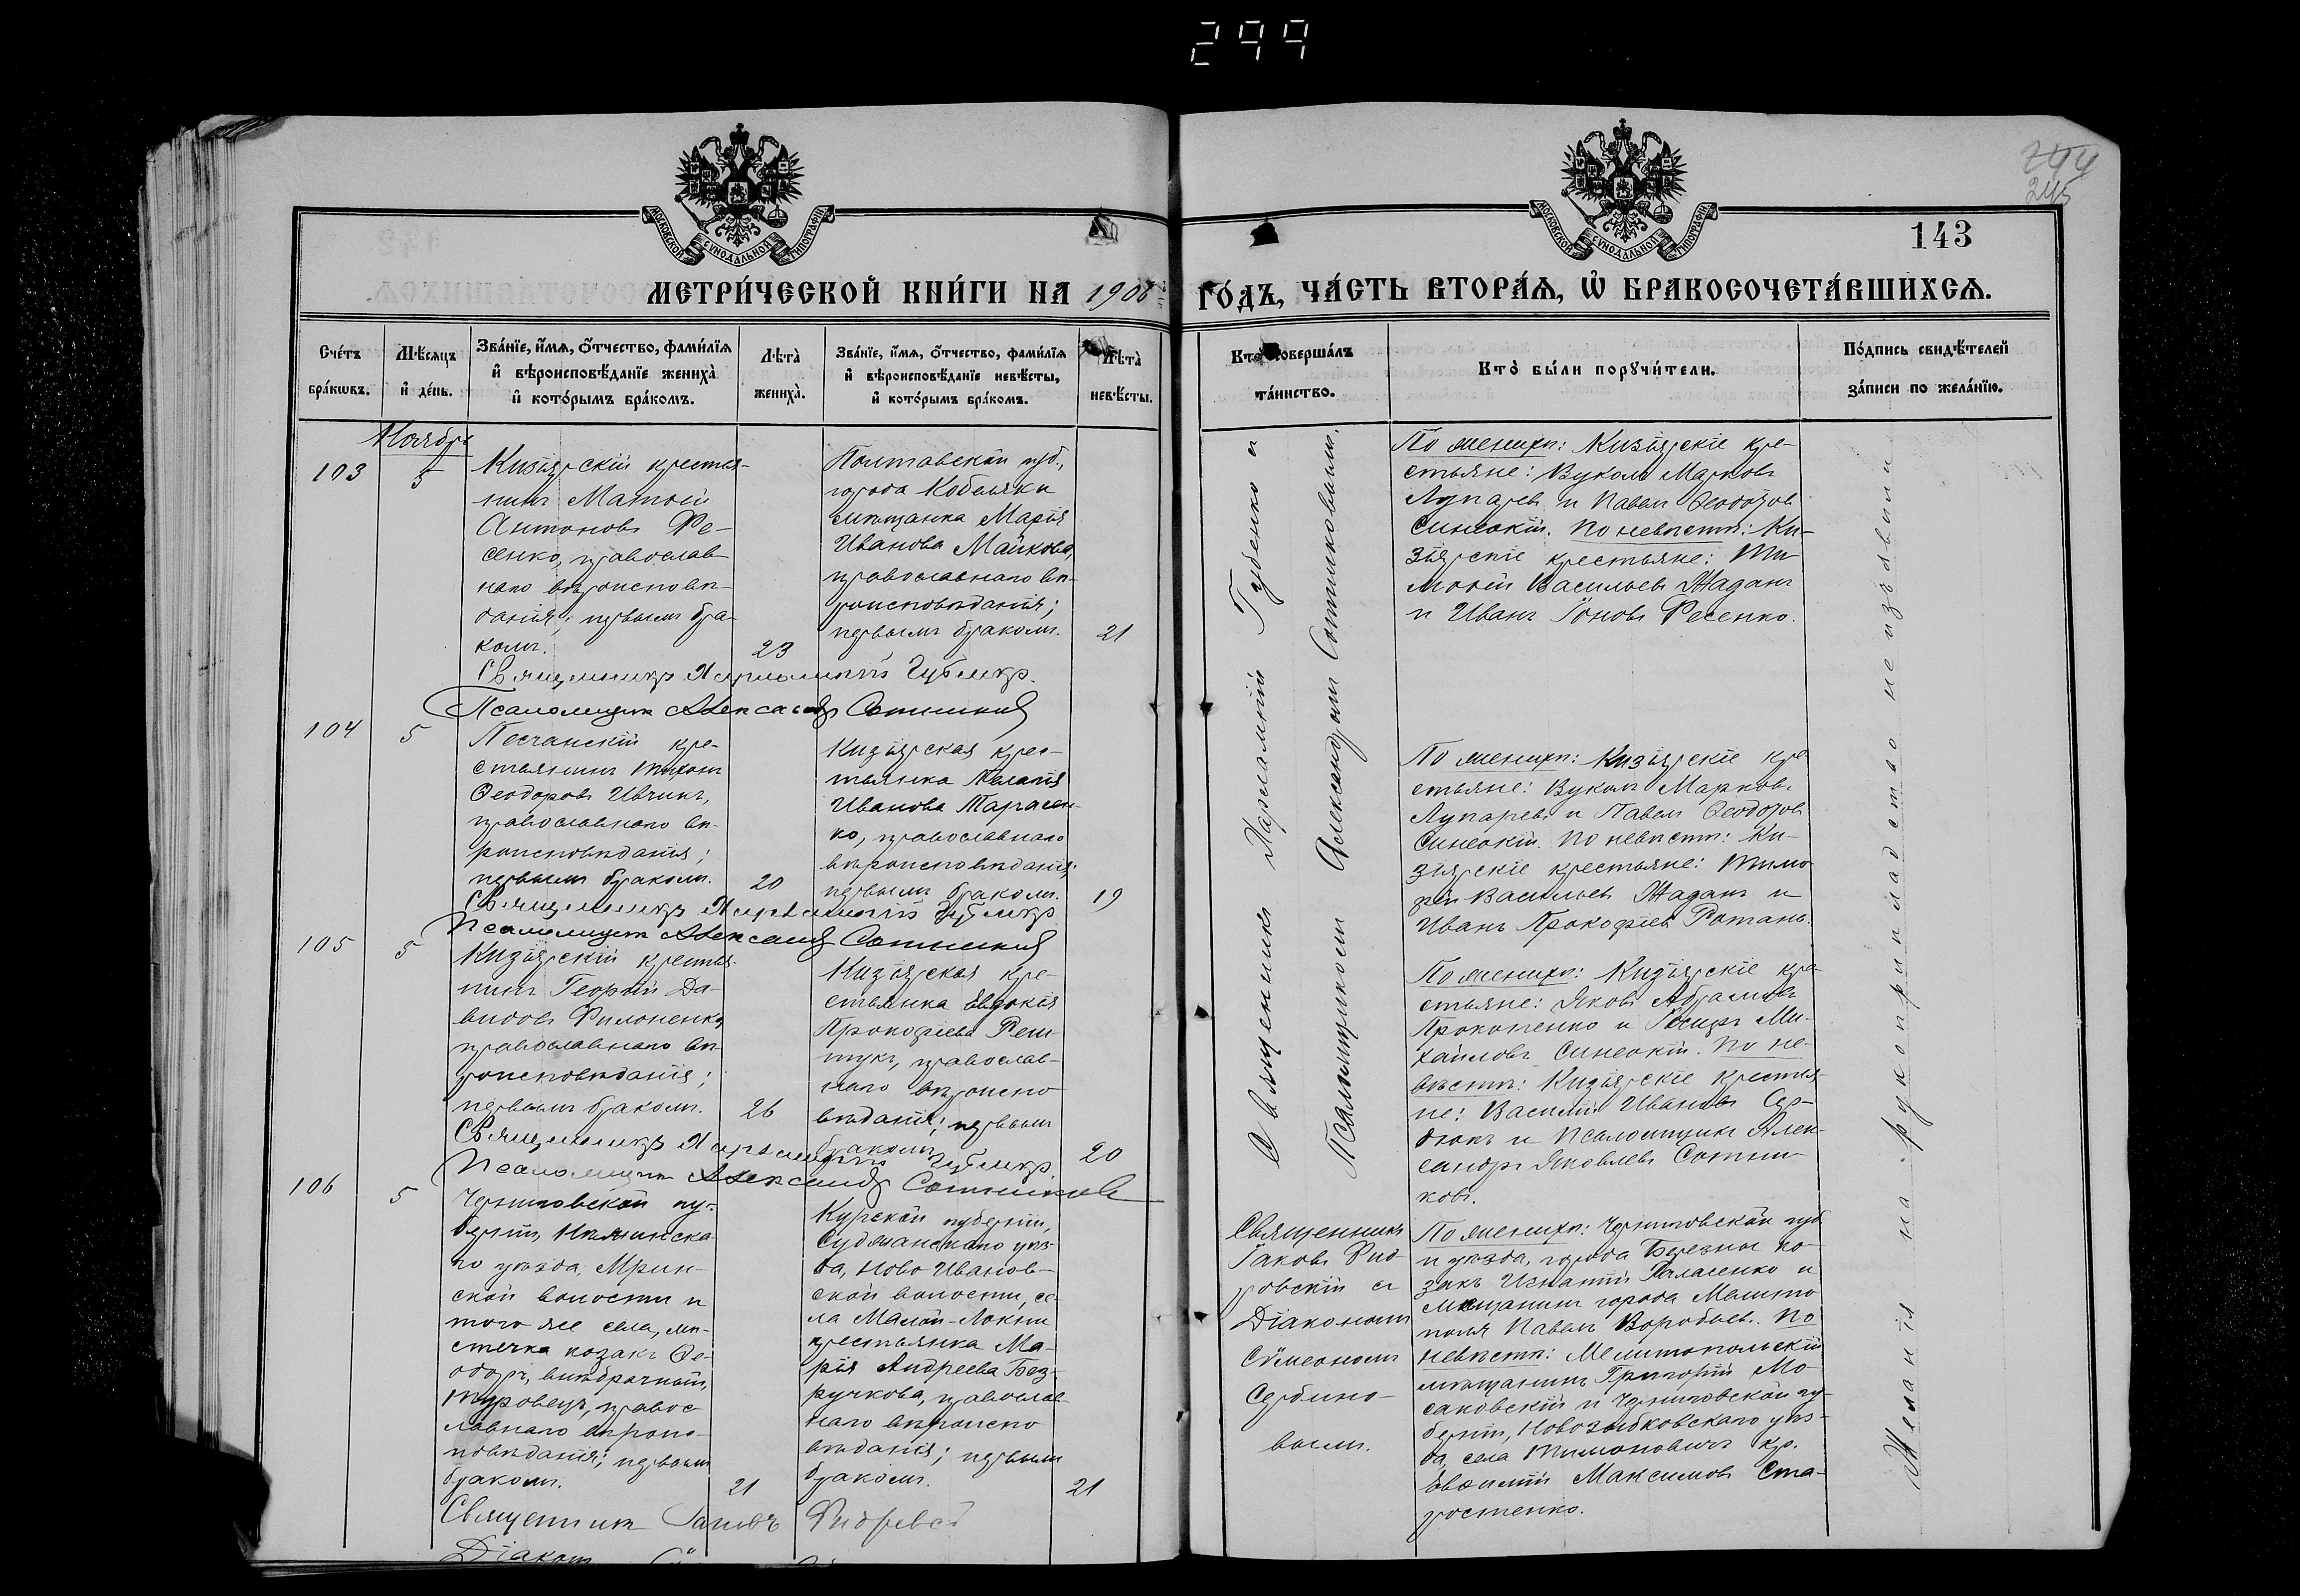 299
244
245
143
МОСКОВСКОЙ СУНОДАЛЬНОЙ ТИПОГРАФІИ
МОСКОВСКОЙ СУНОДАЛЬНОЙ ТИПОГРАФІИ
МЕТРИ́ЧЕСКОЙ КНИ́ГИ НА 1908 ГО́ДЪ, ЧА́СТЬ ВТОРА́Ѧ, Ѽ БРАКОСОЧЕТА́ВШИХСѦ.
Сче́тъ бра́кѡвъ.
Мѣ́сѧцъ и҆ де́нь.
Зва́нїе, и҆́мѧ, ѻ҆́тчество, фами́лїѧ
и҆ вѣроисповѣ́данїе жениха̀
и҆ кото́рымъ бра́комъ.
Лѣ́та̀ жениха̀.
Зва́нїе, и҆́мѧ, ѻ҆́тчество, фами́лїѧ
и҆ вѣроисповѣ́данїе невѣ́сты,
и҆ кото́рымъ бра́комъ.
Лѣ́та̀ невѣ́сты.
Кто̀ соверша́лъ
та́инство.
Кто̀ бы́ли порꙋчи́тели.
По́дпись свидѣ́телей
за́писи по жела́нїю.
Ноябрь
103
5
Кизіярскій крестья-
нинъ Матѳей
Антоновъ Фе-
сенко, православ-
наго вѣроисповѣ-
данія; первымъ бра-
комъ.
23
Полтавской губ.,
города Кобеляки
мѣщанка Марія
Иванова Майкова,
православнаго вѣ-
роисповѣданія;
первымъ бракомъ.
21
По женихѣ: Кизіярскіе кре-
стьяне: Вуколъ Марковъ
Лупаревъ и Павелъ Ѳеодоровъ
Синеокій. По невѣстѣ: Ки-
зіярскіе крестьяне: Ти-
моѳей Васильевъ Жаданъ
и Иванъ Іоновъ Фесенко.
Священникъ Харлампій Губенко
Псаломщикъ Александръ Сотниковъ
104
5
Песчанскій кре-
стьянинъ Тихонъ
Ѳеодоровъ Ивчикъ,
православнаго вѣ-
роисповѣданія;
первымъ бракомъ.
20
Кизіярская крес-
тьянка Пелагія
Иванова Тарасен-
ко, православнаго
вѣроисповѣданія;
первымъ бракомъ.
19
По женихѣ: Кизіярскіе кре-
стьяне: Вуколъ Марковъ
Лупаревъ и Павелъ Ѳеодоровъ
Синеокій. По невѣстѣ: Ки-
зіярскіе крестьяне: Тимо-
ѳей Васильевъ Жаданъ и
Иванъ Прокофіевъ Ротань.
Священникъ Харлампій Губенко
Псаломщикъ Александръ Сотниковъ
105
5
Кизіярскій крестья-
нинъ Георгій Да-
видовъ Филоненко,
православнаго вѣ-
роисповѣданія;
первымъ бракомъ.
26
Кизіярская кре-
стьянка Евдокія
Прокофіева
православ-
наго вѣроиспо-
вѣданія; первымъ
бракомъ.
20
По женихѣ: Кизіярскіе кре-
стьяне: Яковъ Абрамовъ
Прокопенко и Іосифъ Ми-
хайловъ Синеокій. По не-
вѣстѣ: Кизіярскіе крестья-
не: Василій Ивановъ Сер-
дюкъ и Псаломщикъ Алек-
сандръ Яковлевъ Сотни-
ковъ.
Священникъ Харлампій Губенко
Псаломщикъ Александръ Сотниковъ
106
5
Черниговской гу-
берніи, Нѣжинска-
го уѣзда, Мрин-
ской волости и
того же села, мѣ-
стечка козакъ Ѳе-
одоръ, внѣбрачный,
Туровецъ, правос-
лавнаго вѣроис-
повѣданія; первымъ
бракомъ.
21
Курской губерніи,
Суджанскаго уѣз-
да, Ново Иванов-
ской волости, се-
ла Малой-Локни
крестьянка Ма-
рія Андреева Без-
ручкова, православ-
наго вѣроиспо-
вѣданія; первымъ
бракомъ.
21
Священникъ
Іаковъ
съ
Діакономъ
Сѵмеономъ
Сербино-
вымъ.
По женихѣ: Черниговской губ.
и уѣзда, города Березны ко-
закъ Игнатій Паласенко и
мѣщанинъ города Мелито-
поля Павелъ Воробьевъ. По
невѣстѣ: Мелитопольскій
мѣщанинъ Григорій Мо-
саковскій и Черниговской гу-
берніи, Новозыбковскаго уѣз-
да, села Тимоновичъ кр.
Евѳимій Максимовъ Ста-
ростенко.
Священникъ Іаковъ
Діаконъ
Священникъ Харлампій Губенко и
Псаломщикомъ Александромъ Сотниковымъ.
Желанія на рукоприкладство не изъявили